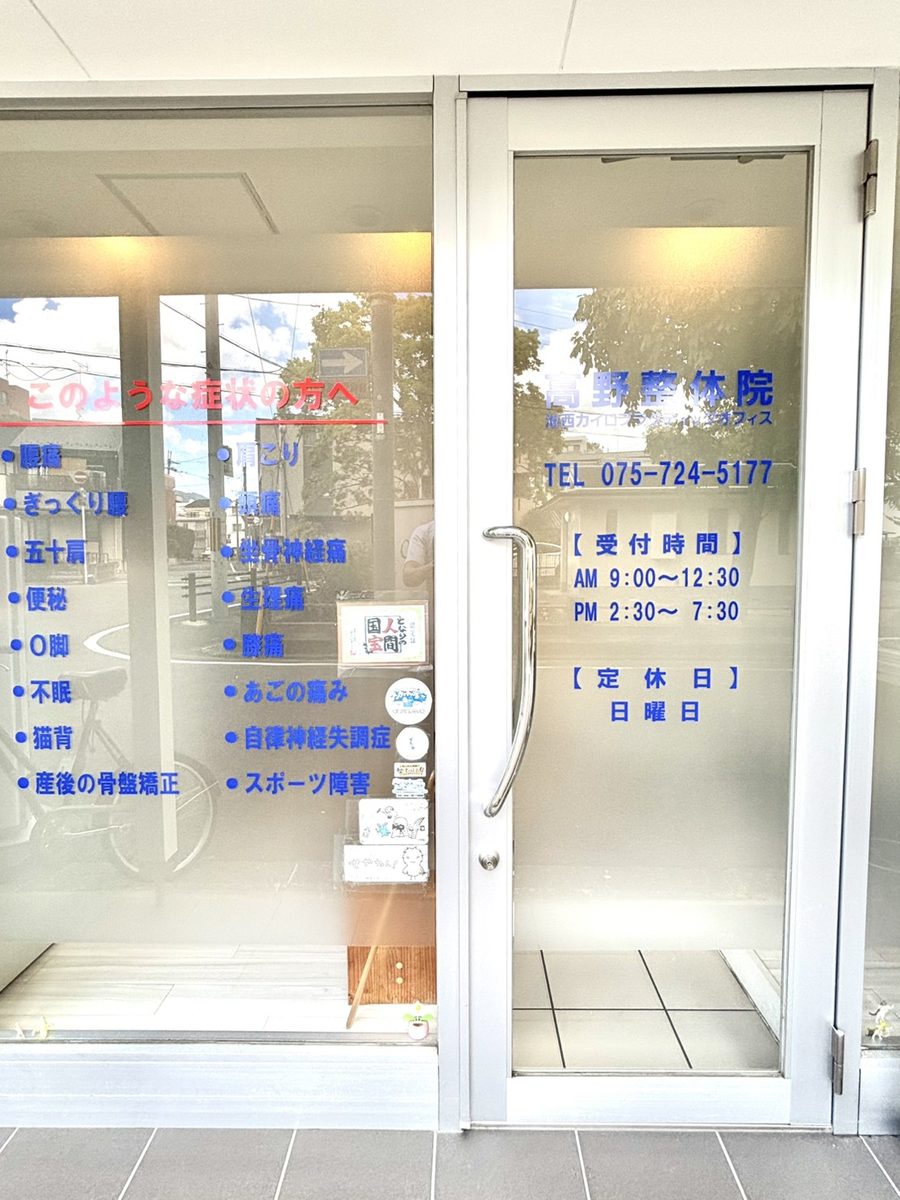 このような症状の方へ
●腰痛
●ぎっくり腰
●五十肩
●便秘
●O脚
●不眠
●猫背
●産後の骨盤矯正
●肩こり
●頭痛
●坐骨神経痛
●生理痛
●膝痛
●あごの痛み
●自律神経失調症
●スポーツ障害
となりの
人間
国宝
高野整体院
TEL 075-724-5177
【受付時間】
AM 9:00～12:30
PM 2:30～ 7:30
【定休日】
日曜日